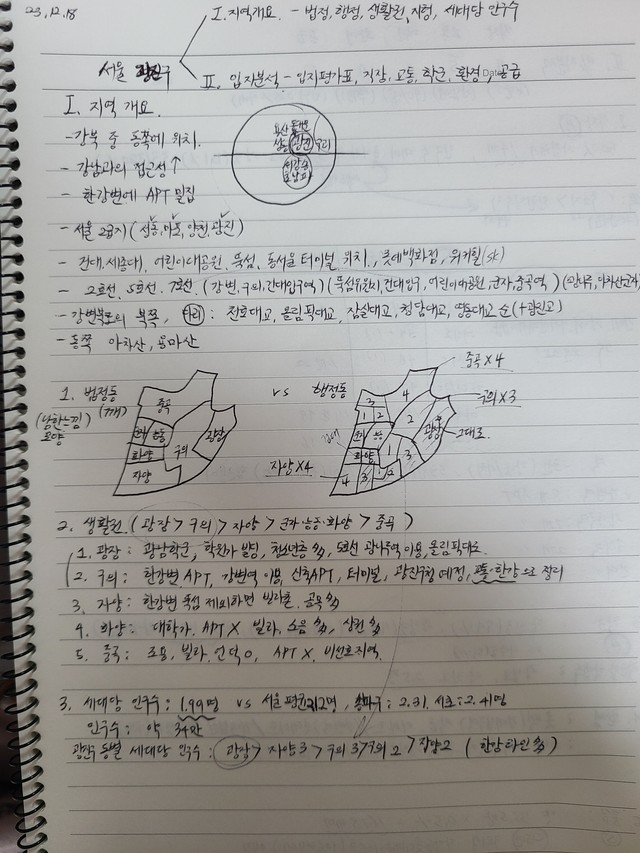 23.12.18
I. 지역개요. - 법정, 행정, 생활권, 지형, 세대당 인구수
서울 광진구
II. 입지분석 - 입지평가표, 직장, 교통, 학군, 환경, 공급
I. 지역 개요.
- 강북 중 동쪽에 위치.
- 강남과의 접근성↑
- 한강변에 APT 밀집
광진 구리
- 서울 2급지 (성동, 마포, 양천, 광진)
- 건대, 세종대, 어린이대공원, 뚝섬, 동서울 터미널 위치, 롯데백화점, 워커힐(sk)
- 2호선, 5호선, 7호선, (강변, 구의, 건대입구역) (뚝섬유원지, 건대입구, 어린이대공원, 군자, 중곡역)
- 강변북로의 북쪽, 다리 : 천호대교, 올림픽대교, 잠실대교, 청담대교, 영동대교 순
- 동쪽 아차산, 용마산
1. 법정동 (7개) vs 행정동
중곡 x 4
구의 x 3
그대로
자양 x 4
중곡 구의 화양 자양
3 4 1 2 2 광장 화양 1 3 4 3 1 2
모양
2. 생활권 (광장 > 구의 > 자양 > 군자·능동·화양 > 중곡)
1. 광장 : 광남학군, 학원가 발달, 청소년층 多, 5호선 광나루역 이용, 올림픽대교
2. 구의 : 한강변 APT, 강변역 이용, 신축APT, 터미널, 광진구청 예정, 교통·한강으로 정리
3. 자양 : 한강변 뚝섬 제외하면 빌라촌, 골목 多
4. 화양 : 대학가, APT X 빌라, 소음 多, 상권 多
5. 중곡 : 조용, 빌라, 언덕 O, APT X, 비선호지역.
3. 세대당 인구수 : 1.99명 vs 서울 평균 2.12명, 송파구 : 2.31, 서초 : 2.41명
인구수 : 약 34만
광진구 동별 세대당 인구수 : 광장 > 자양3 > 구의3 > 구의2 > 자양2 (한강라인 多)